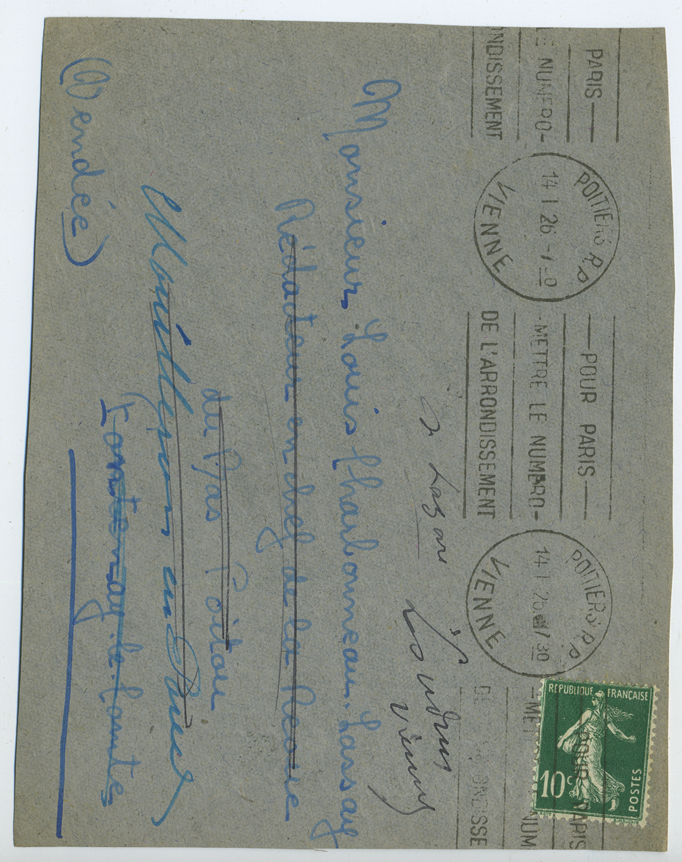 PARIS — POUR PARIS — POUR PARIS
LE NUMERO - METTRE LE NUMERO - METTRE LE NUM
ONDISSEMENT DE L'ARRONDISSEMENT DE L'ARRONDISSE
POITIERS R.P.
14-1 26
VIENNE
POITIERS R.P.
14-1 26
VIENNE
RÉPUBLIQUE FRANÇAISE
10c
POSTES
Loudun
Vienne
Monsieur Louis Charbonneau-Lassay
Rédacteur en chef de la Revue
du Bas Poitou
en
Fontenay-le-Comte
(Vendée)